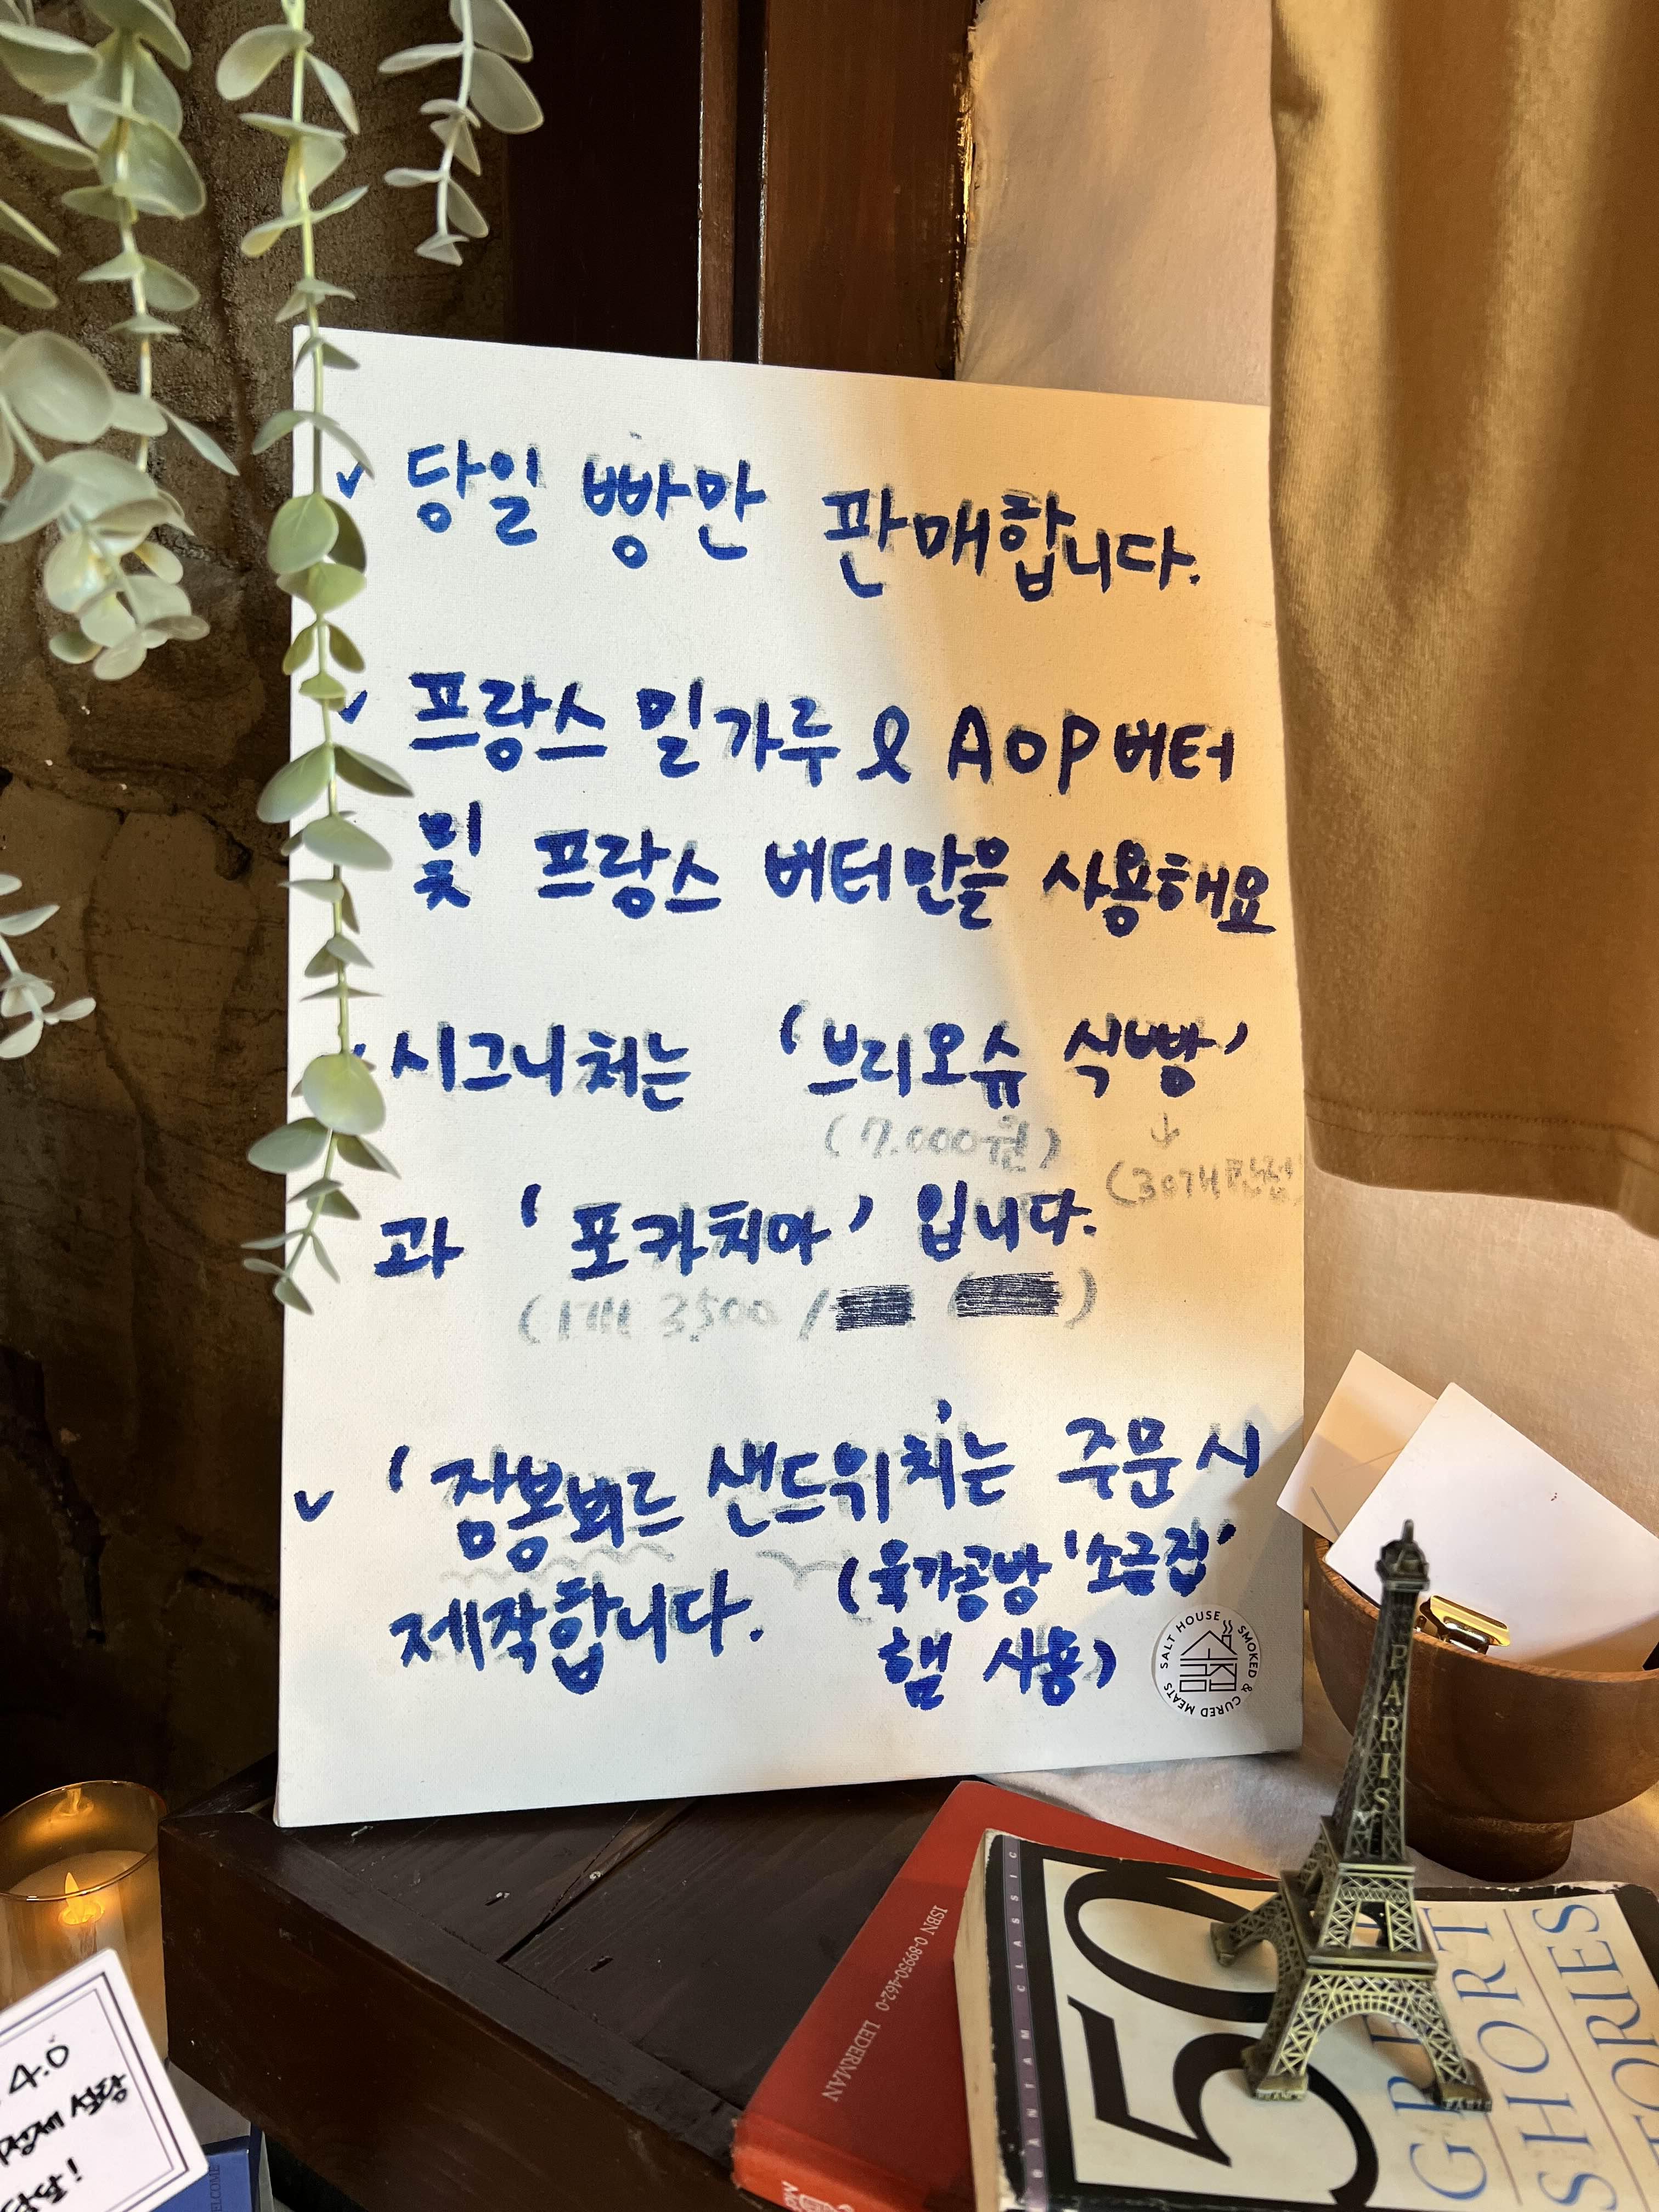 ✓ 당일 빵만 판매합니다.
✓ 프랑스 밀가루 & AOP 버터
및 프랑스 버터만을 사용해요
✓ 시그니처는 '브리오슈 식빵'
(7.000원) ↓
(30개 한정)
과 '포카치아' 입니다.
(1개 3,500 /
✓ '잠봉뵈르 샌드위치'는 주문 시
제작합니다. (육가공방 '소금집'
햄 사용)
SALT HOUSE SMOKED & CURED MEATS
PARIS
ISBN 0-89950-462-0 LEDERMAN
BANTAM CLASSIC
50
GREAT
SHORT
STORIES
4.0